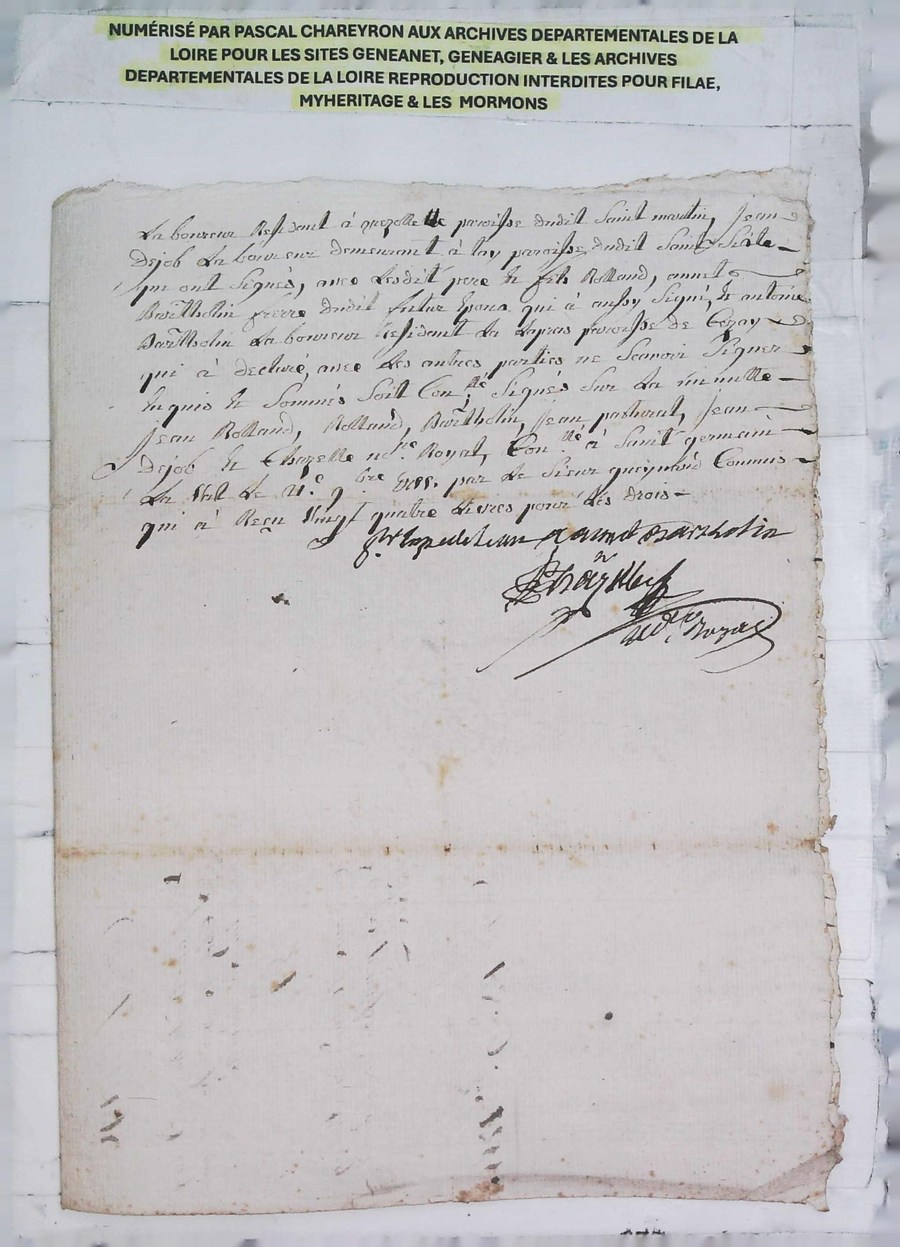 NUMÉRISÉ PAR PASCAL CHAREYRON AUX ARCHIVES DEPARTEMENTALES DE LA
LOIRE POUR LES SITES GENEANET, GENEAGIER & LES ARCHIVES
DEPARTEMENTALES DE LA LOIRE REPRODUCTION INTERDITES POUR FILAE,
MYHERITAGE & LES MORMONS
La boureur Residant à paroisse dudit Saint martin, Jean
Dejob La boureur demeurant à lay paroisse dudit Saint
qui ont Signés, avec Lesdit pere et fils Rolland, annet
Bartholin frerre dudit futur Epoux qui à aussy Signé, et antoine
Bartholin La boureur Residant La Lapras paroisse de Cezay
qui à declaré, avec Les autres parties ne Scavoir Signer
Enquis et Sommés Soit Con.lé Signés Sur La minutte
Jean Rolland, Rolland, Bartholin, Jean Jean
dejob et Chazelle no.re Royal, Con.llé à Saint germain
La Val Le 9.bre par Le Sieur Commis
qui à Reçu Vingt quatre Livres pour Les drois
annet Bartholin